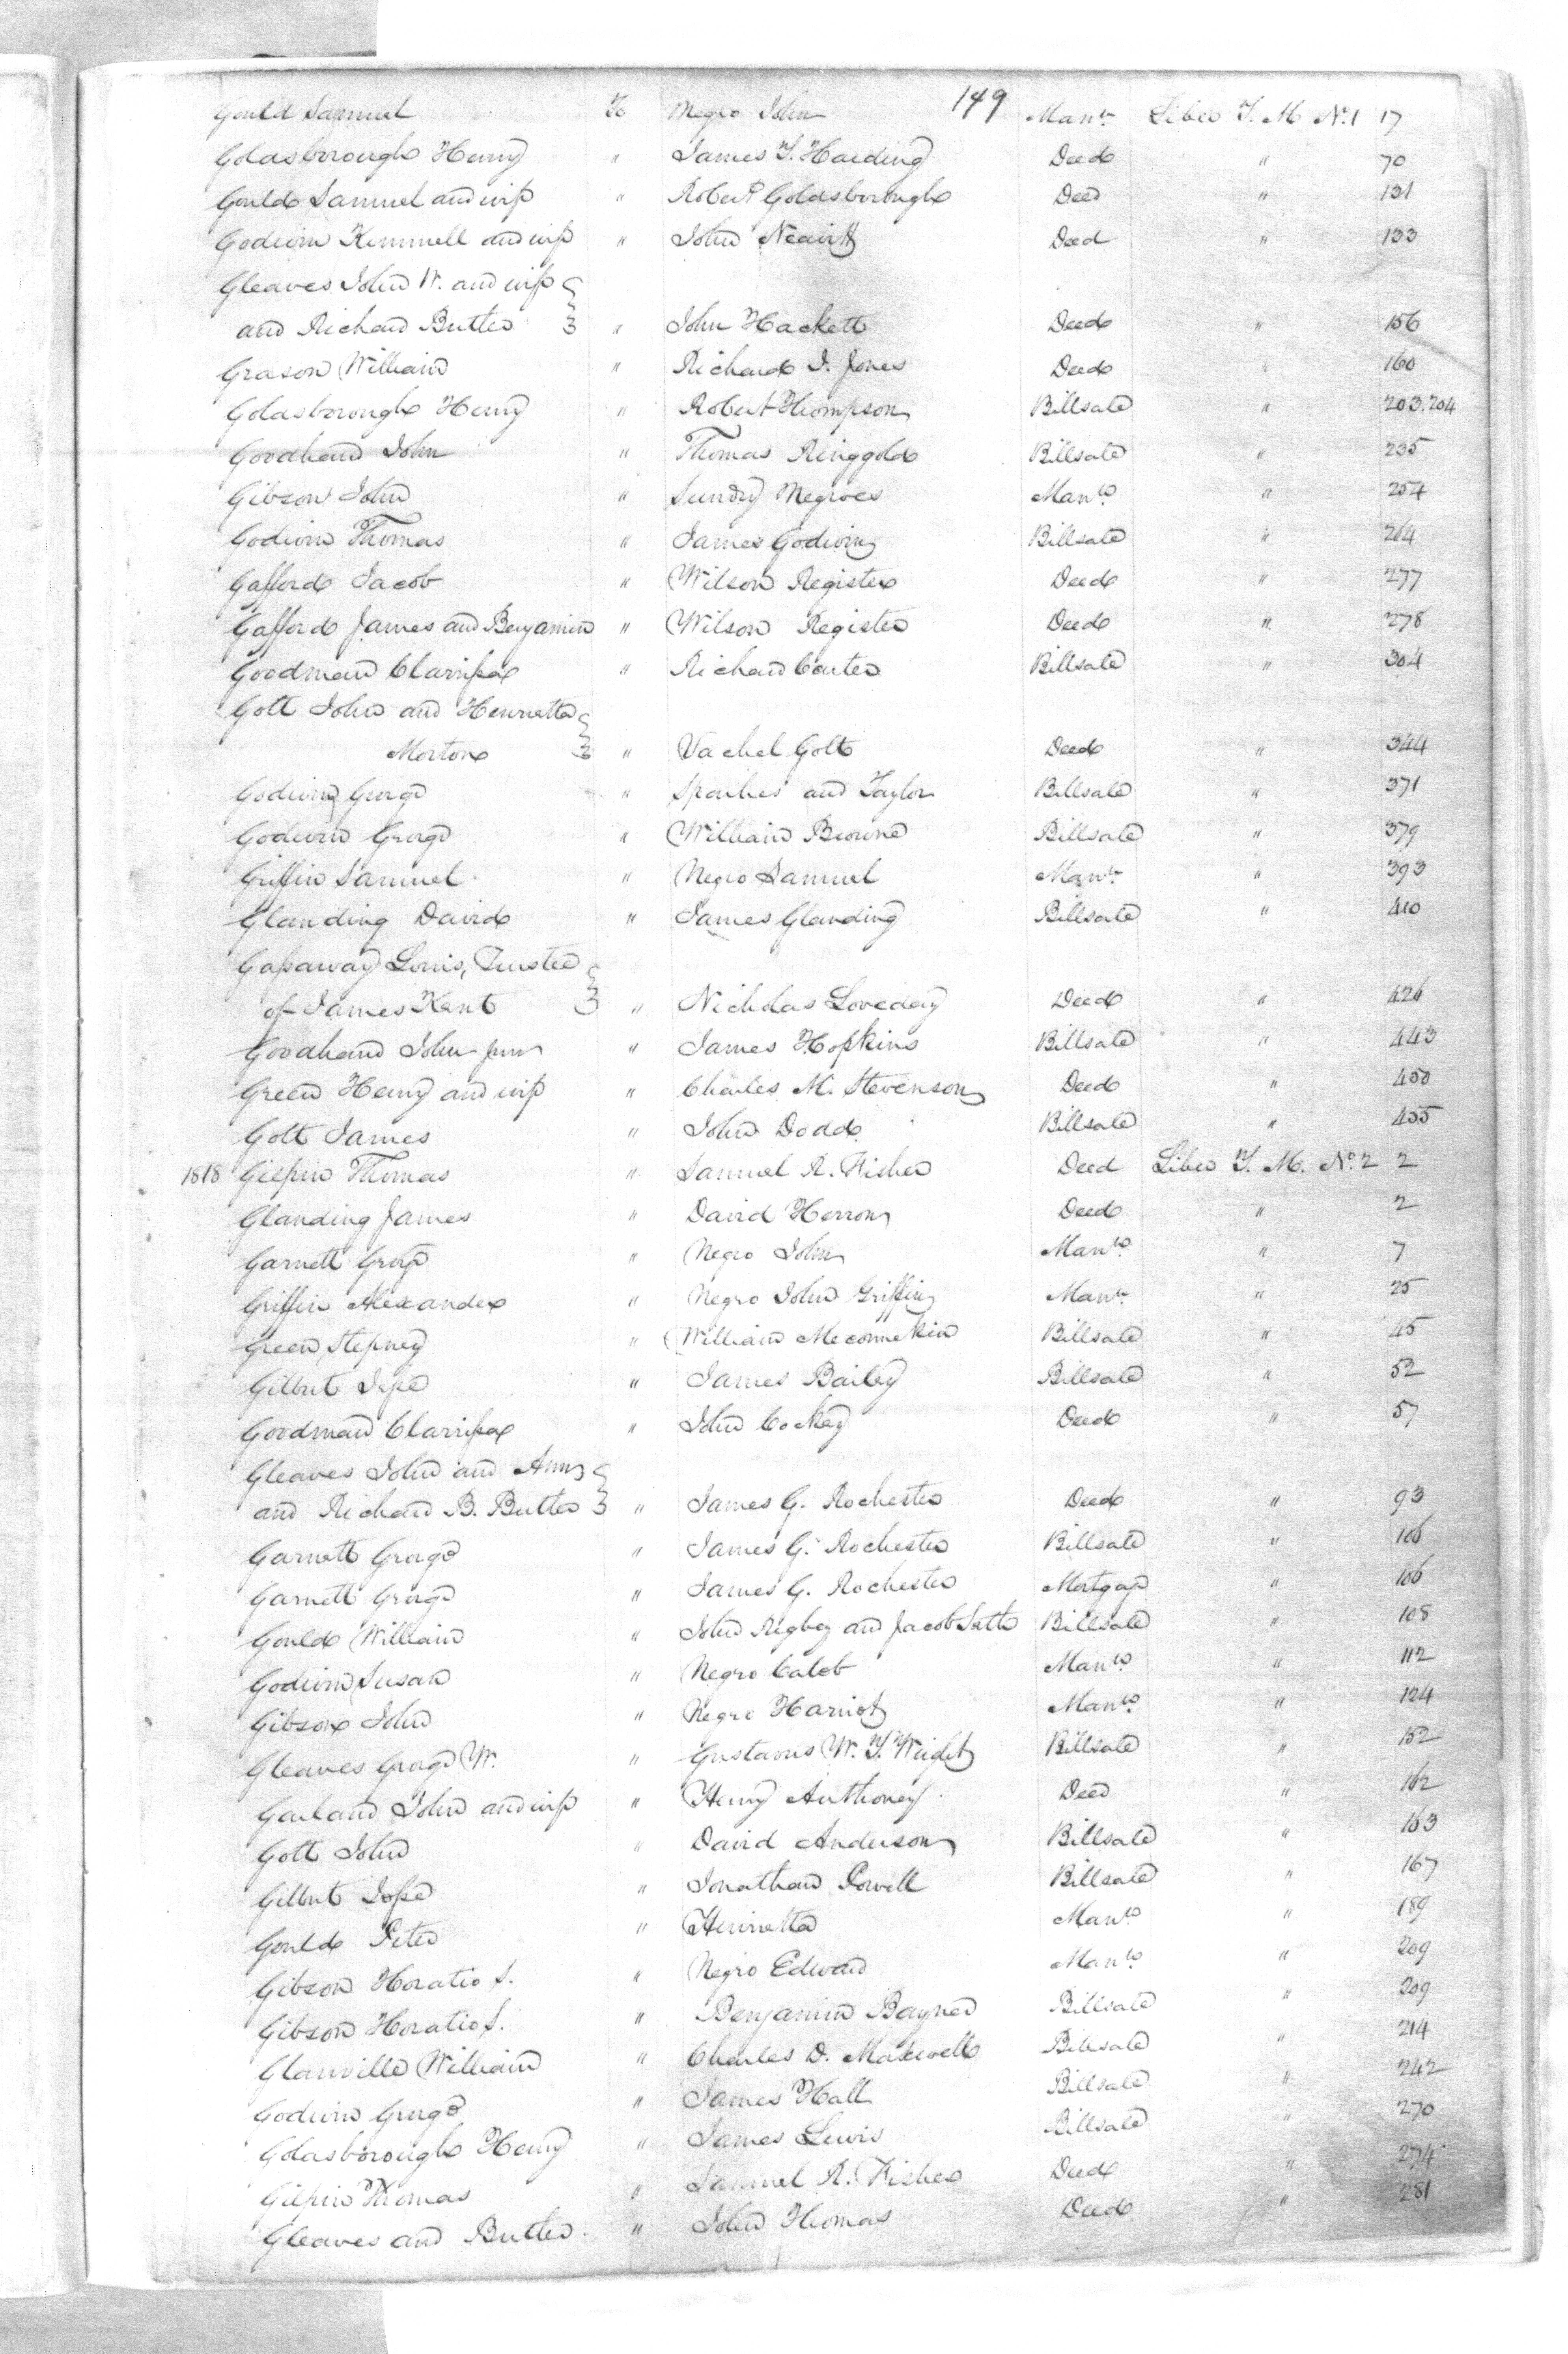 149
Gould Samuel To Negro John Mann. Liber T. M No. 1 17
Goldsborough Henry " James T. Harding Deed " 70
Gould Samuel and wife " Robert Goldsborough Deed " 131
Godwin Kimmell and wife " John Neavitt Deed " 133
Gleaves John W. and wife
and Richard Butler " John Hackett Deed " 156
Grason William " Richard I. Jones Deed " 160
Goldsborough Henry " Robert Thompson Billsale " 203.204
Goodhand John " Thomas Ringgold Billsale " 235
Gibson John " Sundry Negroes Mann. " 254
Godwin Thomas " James Godwin Billsale " 264
Gafford Jacob " Wilson Register Deed " 277
Gafford James and Benjamin " Wilson Register Deed " 278
Goodman Clarissa " Richard Carter Billsale " 304
Golt John and Henrietta
Morton " Vachel Golt Deed " 344
Godwin George " Sparkes and Taylor Billsale " 371
Godwin George " William Browne Billsale " 379
Griffin Samuel " Negro Samuel Mann. " 393
Glanding David " James Glanding Billsale " 410
Gassaway Louis, Trustee
of James Kent " Nicholas Loveday Deed " 426
Goodhand John Junr " James Hopkins Billsale " 443
Green Henry and wife " Charles M. Stevenson Deed " 450
Golt James " John Dodd Billsale " 455
1818 Gilpin Thomas " Samuel R. Fisher Deed Liber T. M. No. 2 2
Glanding James " David Herron Deed " 2
Garnett George " Negro John Mann. " 7
Griffin Alexander " Negro John Griffin Mann. " 25
Green Stepney " William Meconnekin Billsale " 45
Gilbert Jesse " James Bailey Billsale " 52
Goodman Clarissa " John Cockey Deed " 57
Gleaves John and Ann
and Richard B. Butler " James G. Rochester Deed " 93
Garnett George " James G. Rochester Billsale " 106
Garnett George " James G. Rochester Mortgage " 106
Gould William " John Rigbey and Jacob Seth Billsale " 108
Godwin Susan " Negro Caleb Mann. " 112
Gibson John " Negro Harriot Mann. " 124
Gleaves George W. " Gustavus W. T. Wright Billsale " 152
Garland John and wife " Henry Anthoney Deed " 162
Golt John " David Anderson Billsale " 163
Gilbert Jesse " Jonathan Powell Billsale " 167
Gould Peter " Henrietta Mann. " 189
Gibson Horatio S. " Negro Edward Mann. " 209
Gibson Horatio S. " Benjamin Bayner Billsale " 209
Glanville William " Charles D. Makewell Billsale " 214
Godwin George " James Hall Billsale " 242
Goldsborough Henry " James Lewis Billsale " 270
Gilpin Thomas " Samuel R. Fisher Deed " 274
Gleaves and Butler " John Thomas Deed " 281